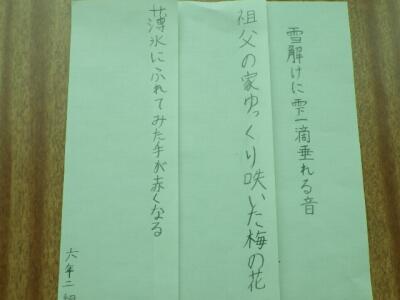 雪解けに雫一滴垂れる音
祖父の家ゆっくり咲いた梅の花
薄氷にふれてみた手が赤くなる
六年二組